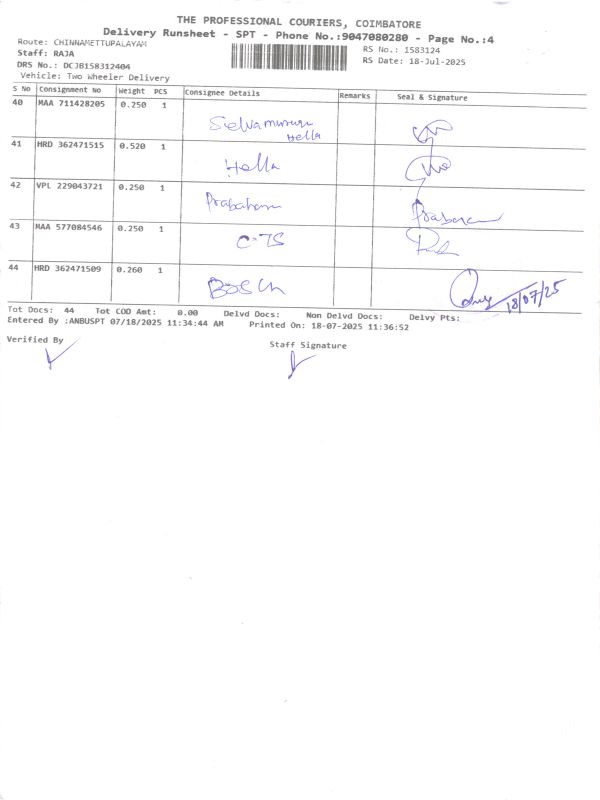 THE PROFESSIONAL COURIERS, COIMBATORE
Delivery Runsheet - SPT - Phone No.:9047080280 - Page No.:4
Route: CHINNAMETTUPALAYAM
RS No.: 1583124
Staff: RAJA
RS Date: 18-Jul-2025
DRS No.: DCJB158312404
Vehicle: Two Wheeler Delivery
S No Consignment No Weight PCS Consignee Details Remarks Seal & Signature
40 MAA 711428205 0.250 1
Selvamurugu
Hella
41 HRD 362471515 0.520 1
Hella
42 VPL 229043721 0.250 1
Prabaharan
43 MAA 577084546 0.250 1
C-TS
44 HRD 362471509 0.260 1
BOSCH
18/07/25
Tot Docs: 44 Tot COD Amt: 0.00 Delvd Docs: Non Delvd Docs: Delvy Pts:
Entered By :ANBUSPT 07/18/2025 11:34:44 AR Printed On: 18-07-2025 11:36:52
Verified By
Staff Signature